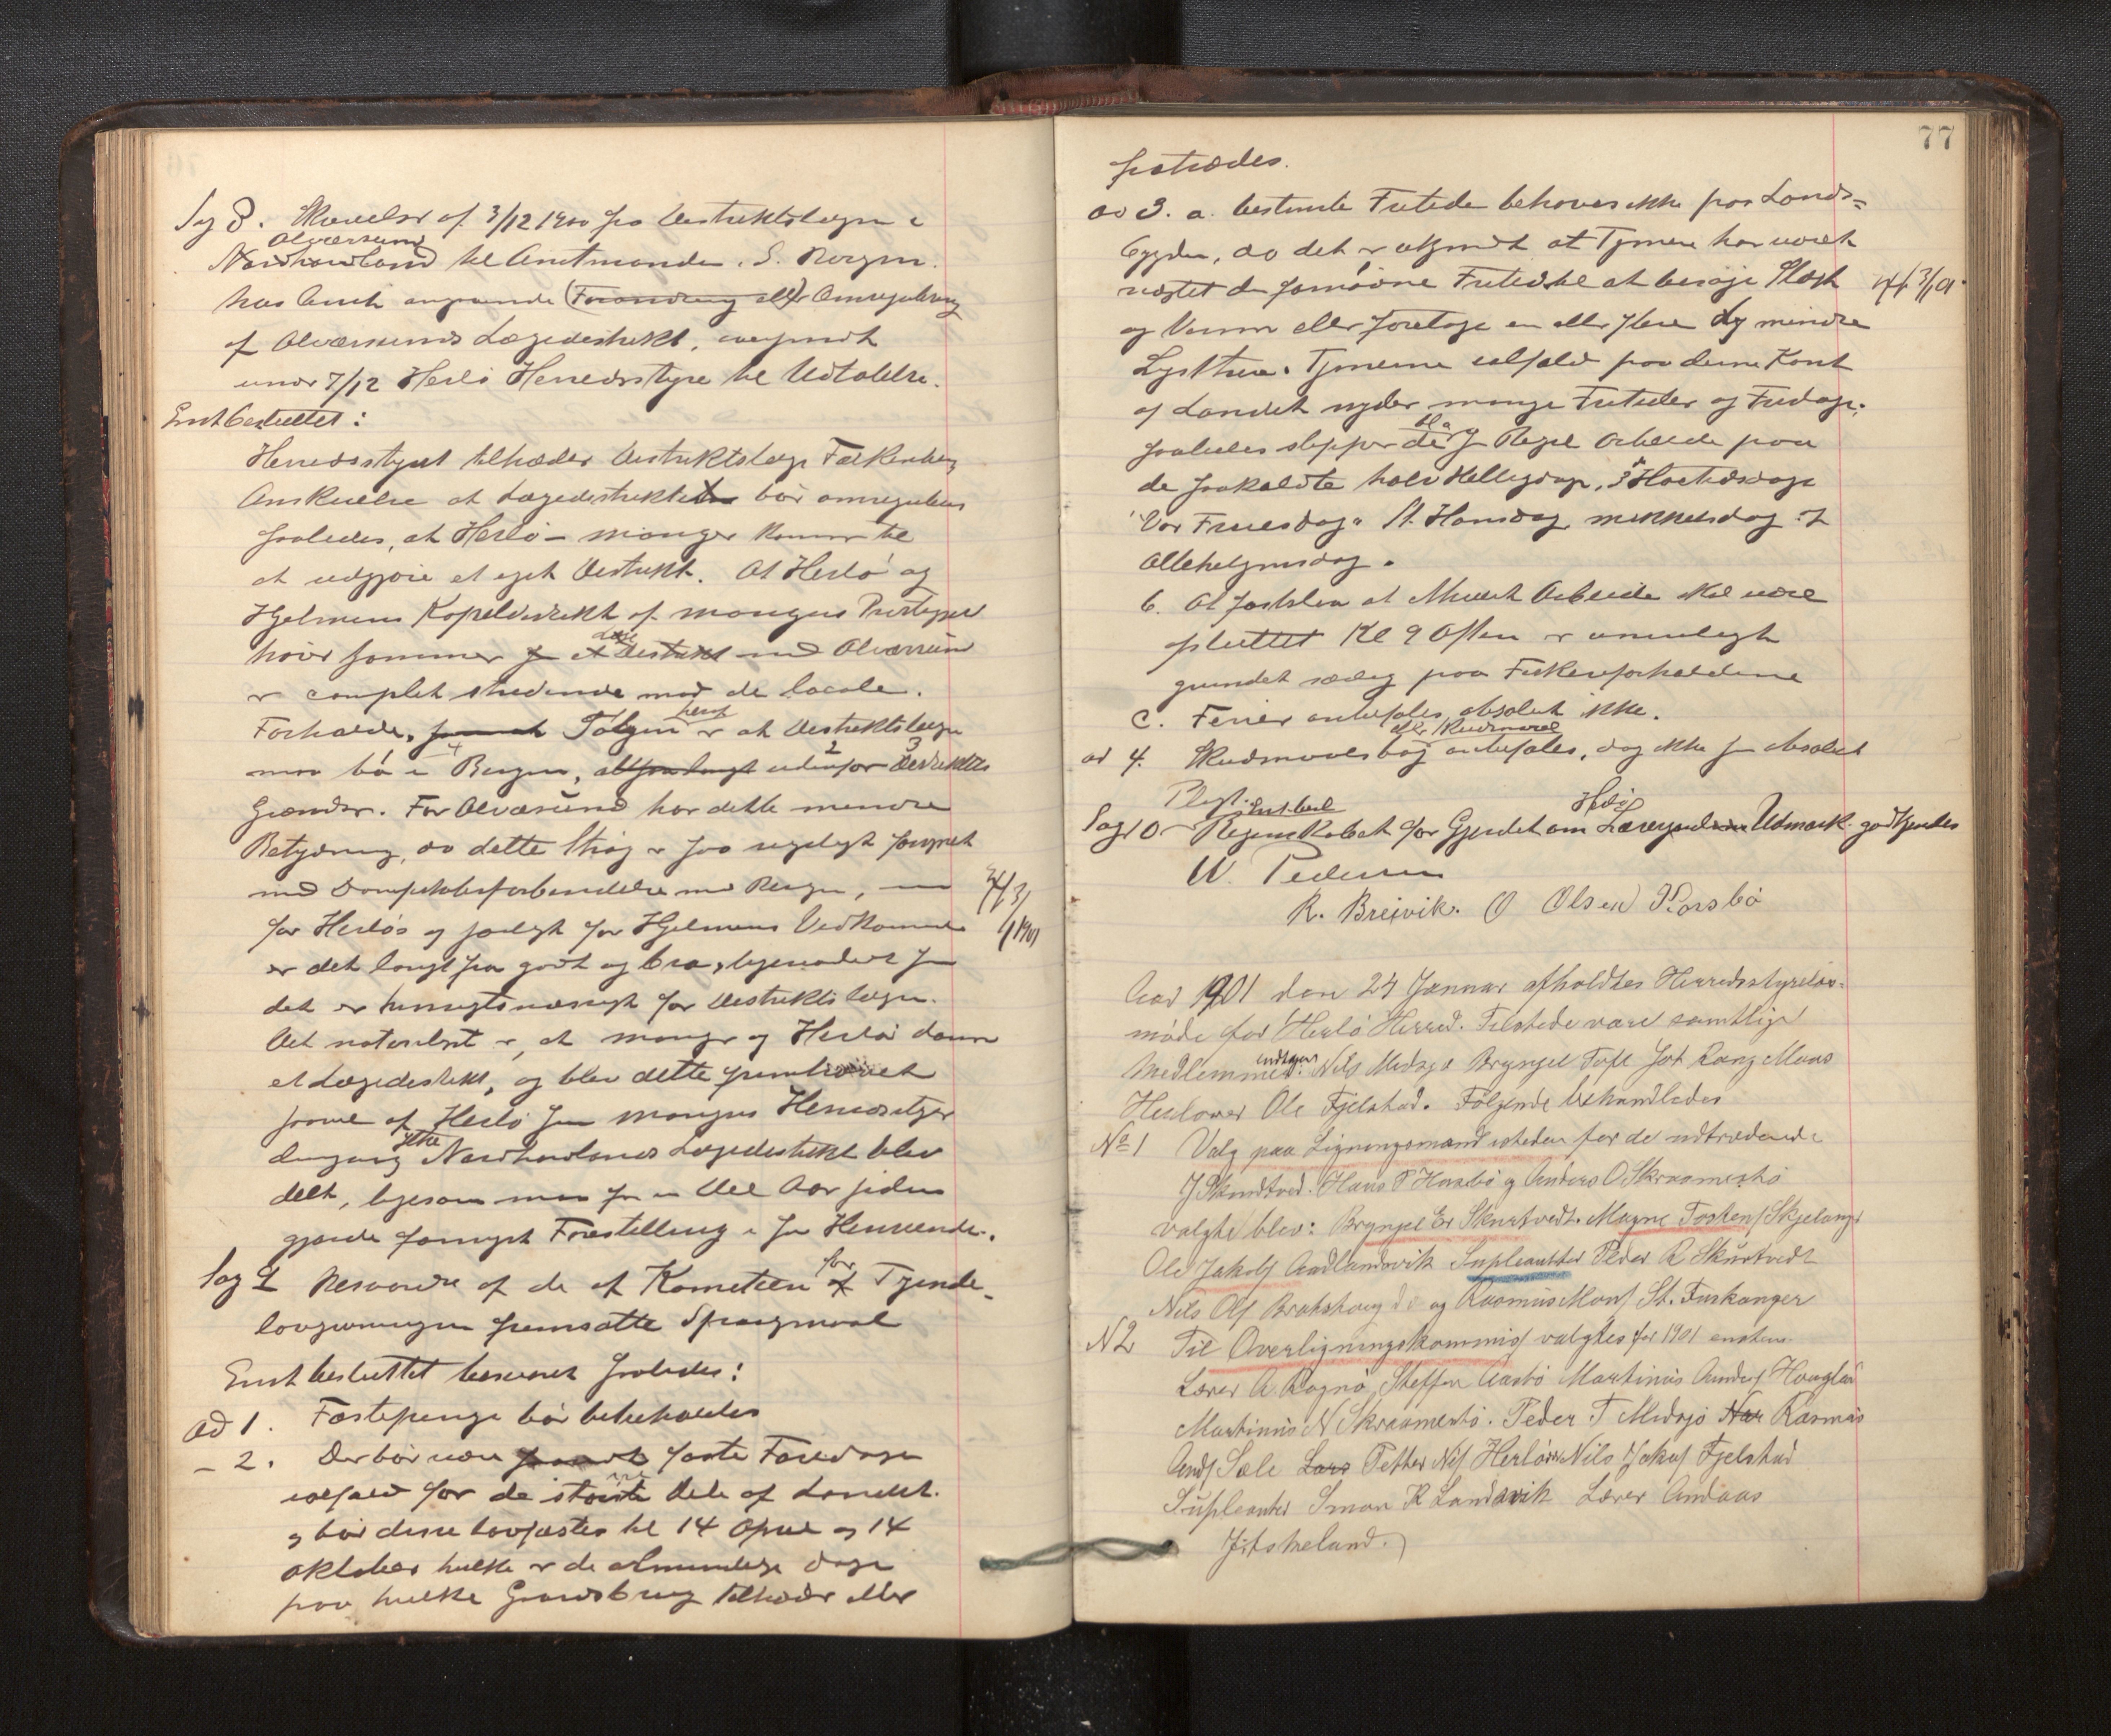 Sag 8. Skrivelse af 3/12 1900 fra Destriktslægen i
Alværsund
Nordhordland til Amtmanden i S. Bergen.
hus Amt angaaende (Forandring eller) Omregulering
af Alværsunds Lægedestrikt, oversendt
under 7/12 Herlö Herredsstyre til Udtalelse.
Enst besluttet:
Herredsstyret tiltræder Destriktslæge Falkenberg
Anskuelse at Lægedestriktet bör omreguleres
saaledes, at Herlö - Manger kommer til
at udgjöre et eget Destrikt. At Herlö og
Hjelmens Kapeldestrikt af Mangers Prestegjeld
hörer sammen med Alversund
er complet stridende mod de locale
Forhold. Fölgen er at Destriktslægen
maa bo i Bergen, udenfor Destriktets
Grænser. For Alværsund har dette mindre
Betydning, da dette Strög er saa rigeligt forsynet
med Dampskibsforbindelse med Bergen, men
for Herlös og særligt for Hjelmens Vedkommende
er det langt fra godt og bra, ligesaalidt som
det er hensigtsmæssigt for Destriktslægen.
Det naturligste er, at Manger og Herlö danner
et Lægedestrikt, og blev dette fremhævet
saavel af Herlö som Mangers Herredsstyrer
dengang Nordhordlands Lægedestrikt blev
delt, ligesom man for en Del Aar siden
gjorde fornyet Forestilling i saa Henseende.
3/1
1901
Sag 9 Besvarelse af de af Kometeen for Tyende-
lovgivningen fremsatte Spørgsmaal
Enst besluttet besvaret saaledes:
ad 1. Fæstepenge bör bibeholdes
- 2. Der bör være faste Faredage
ialfald for de större Dele af Landet.
og bör disse lovfæstes til 14 April og 14
Oktober hvilke er de almindelige Dage
paa hvilke Gaardsbrug tiltrædes eller
77
fratrædes.
ad 3. a. bestemte Fritider behöves ikke paa Lands-
bygden, da det er ukjendt at Tjenere har været
nægtet den fornödne Fritid til at besöge Slægt
3/1 01
og Venner eller foretage en eller flere mindre
Lystture. Tjenerne ialfald paa denne Kant
af Landet nyder mange Fritider og Fridage.
saaledes slipper de som Regel Arbeide paa
de saakaldte halv Helligdage, 3die Høitidsdage
"Vor Fruesdag" St. Hansdag, Mikkelsdag og
Allehelgensdag.
b. At fastslaa at Aldeles Arbeide skal være
sluttet Kl 9 Aften er umuligt
grundet særlig paa Fiskeriforholdene
c. Ferier anbefales absolut ikke.
eller Skudsmaal
ad 4. Skudsmaalsbog anbefales, dog ikke som absolut
Pligt.
Enst. besl.
Sag 10 - Regnskabet for Gjerdet om Herlö Lærerjords Udmark godkjendes
W. Pedersen
R. Breivik. O Olsen Horsbö
Aar 1901 den 24 Januar afholdtes Herredsstyrelses-
möde for Herlö Herred. Tilstede vare samtlige
Medlemmer undtagen Nils Midsjø Brynjel Toft Joh Rong Mons
Herlover Ole Fjelstad. Fölgende behandledes
No 1 Valg paa Ligningsmænd isteden for de udtrædende
J Skurtved. Hans P Horsbö og Anders O Skraamestö
valgte blev: Brynjel Er Skurtvedt. Magne Tostens Skjelanger
Ole Jakobs Aadlandsvik Supleanter Peder R Skurtvedt
Nils Ols Brakshaug do og Rasmus Mons St. Fuskanger
N 2 Til Overligningskommis valgtes for 1901 enstem.
Lærer A Ragnö, Steffen Aasbö Martinus Anders Hauglan
Martinus N Skraamestö. Peder T Midsjø Rasmus
Ands Sæle Lars Petter Nils Herlöver Nils Jakobs Fjelstad
Supleanter Simon R Landsvik Lærer Andaas
Fitskeland.